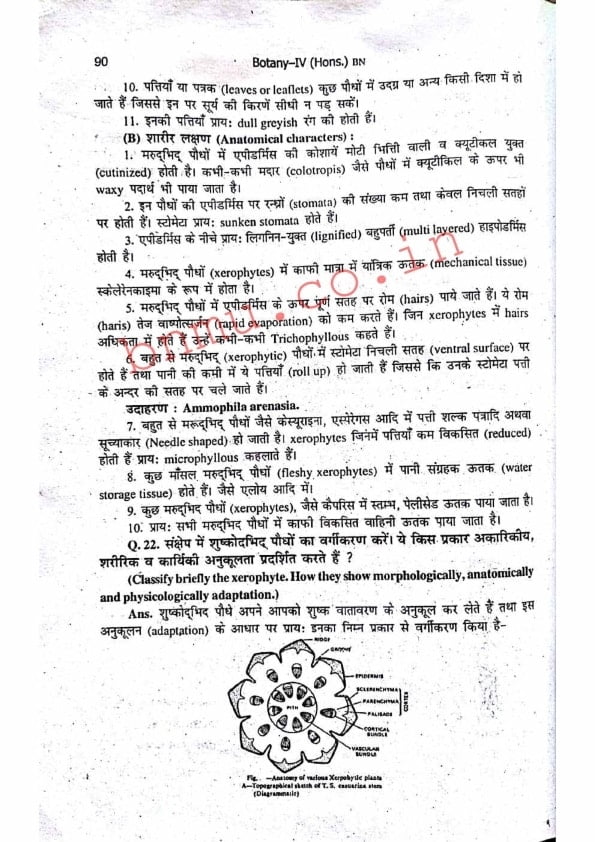 90 Botany-IV (Hons.) BN
10. पत्तियाँ या पत्रक (leaves or leaflets) कुछ पौधों में उदग्र या अन्य किसी दिशा में हो
जाते हैं जिससे इन पर सूर्य की किरणें सीधी न पड़ सकें।
11. इनकी पत्तियाँ प्रायः dull greyish रंग की होती हैं।
(B) शारीर लक्षण (Anatomical characters) :
1. मरुद्भिद् पौधों में एपीडर्मिस की कोशायें मोटी भित्ती वाली व क्यूटीकल युक्त
(cutinized) होती है। कभी-कभी मदार (colotropis) जैसे पौधों में क्यूटीकिल के ऊपर भी
waxy पदार्थ भी पाया जाता है।
2. इन पौधों की एपीडर्मिस पर रन्ध्रों (stomata) की संख्या कम तथा केवल निचली सतहों
पर होती हैं। स्टोमेटा प्रायः sunken stomata होते हैं।
3. एपीडर्मिस के नीचे प्रायः लिगनिन-युक्त (lignified) बहुपर्ती (multi layered) हाइपोडर्मिस
होती है।
4. मरुद्भिद् पौधों (xerophytes) में काफी मात्रा में यांत्रिक ऊतक (mechanical tissue)
स्केलेरेनकाइमा के रूप में होता है।
5. मरुद्भिद् पौधों में एपीडर्मिस के ऊपर पूर्ण सतह पर रोम (hairs) पाये जाते हैं। ये रोम
(haris) तेज वाष्पोत्सर्जन (rapid evaporation) को कम करते हैं। जिन xerophytes में hairs
अधिकता में होते हैं उन्हें कभी-कभी Trichophyllous कहते हैं।
6. बहुत से मरुद्भिद् (xerophytic) पौधों में स्टोमेटा निचली सतह (ventral surface) पर
होते हैं तथा पानी की कमी में ये पत्तियाँ (roll up) हो जाती हैं जिससे कि उनके स्टोमेटा पत्ती
के अन्दर की सतह पर चले जाते हैं।
उदाहरण : Ammophila arenasia.
7. बहुत से मरूद्भिद् पौधों जैसे केस्यूराइना, एस्पेरेगस आदि में पत्ती शल्क पत्रादि अथवा
सूच्याकार (Needle shaped) हो जाती है। xerophytes जिनमें पत्तियाँ कम विकसित (reduced)
होती हैं प्रायः microphyllous कहलाते हैं।
8. कुछ माँसल मरुद्भिद् पौधों (fleshy xerophytes) में पानी संग्रहक ऊतक (water
storage tissue) होते हैं। जैसे एलोय आदि में।
9. कुछ मरुद्भिद् पौधों (xerophytes), जैसे कैपरिस में स्तम्भ, पेलीसेड ऊतक पाया जाता है।
10. प्रायः सभी मरुद्भिद् पौधों में काफी विकसित वाहिनी ऊतक पाया जाता है।
Q. 22. संक्षेप में शुष्कोद्भिद् पौधों का वर्गीकरण करें। ये किस प्रकार अकारिकीय,
शरीरिक व कार्यिकी अनुकूलता प्रदर्शित करते हैं ?
(Classify briefly the xerophyte. How they show morphologically, anatomically
and physicologically adaptation.)
Ans. शुष्कोद्भिद् पौधे अपने आपको शुष्क वातावरण के अनुकूल कर लेते हैं तथा इस
अनुकूलन (adaptation) के आधार पर प्रायः इनका निम्न प्रकार से वर्गीकरण किया है-
RIDGE
GROOVE
EPIDERMIS
SCLERENCHYMA
PARENCHYMA
PALISADE
CORTEX
PITH
CORTICAL
BUNDLE
VASCULAR
BUNDLE
Fig. —Anatomy of various Xerpohytic plants
A—Topographical sketch of T. S. casuarina stem
(Diagrammatic)
bnmu.co.in